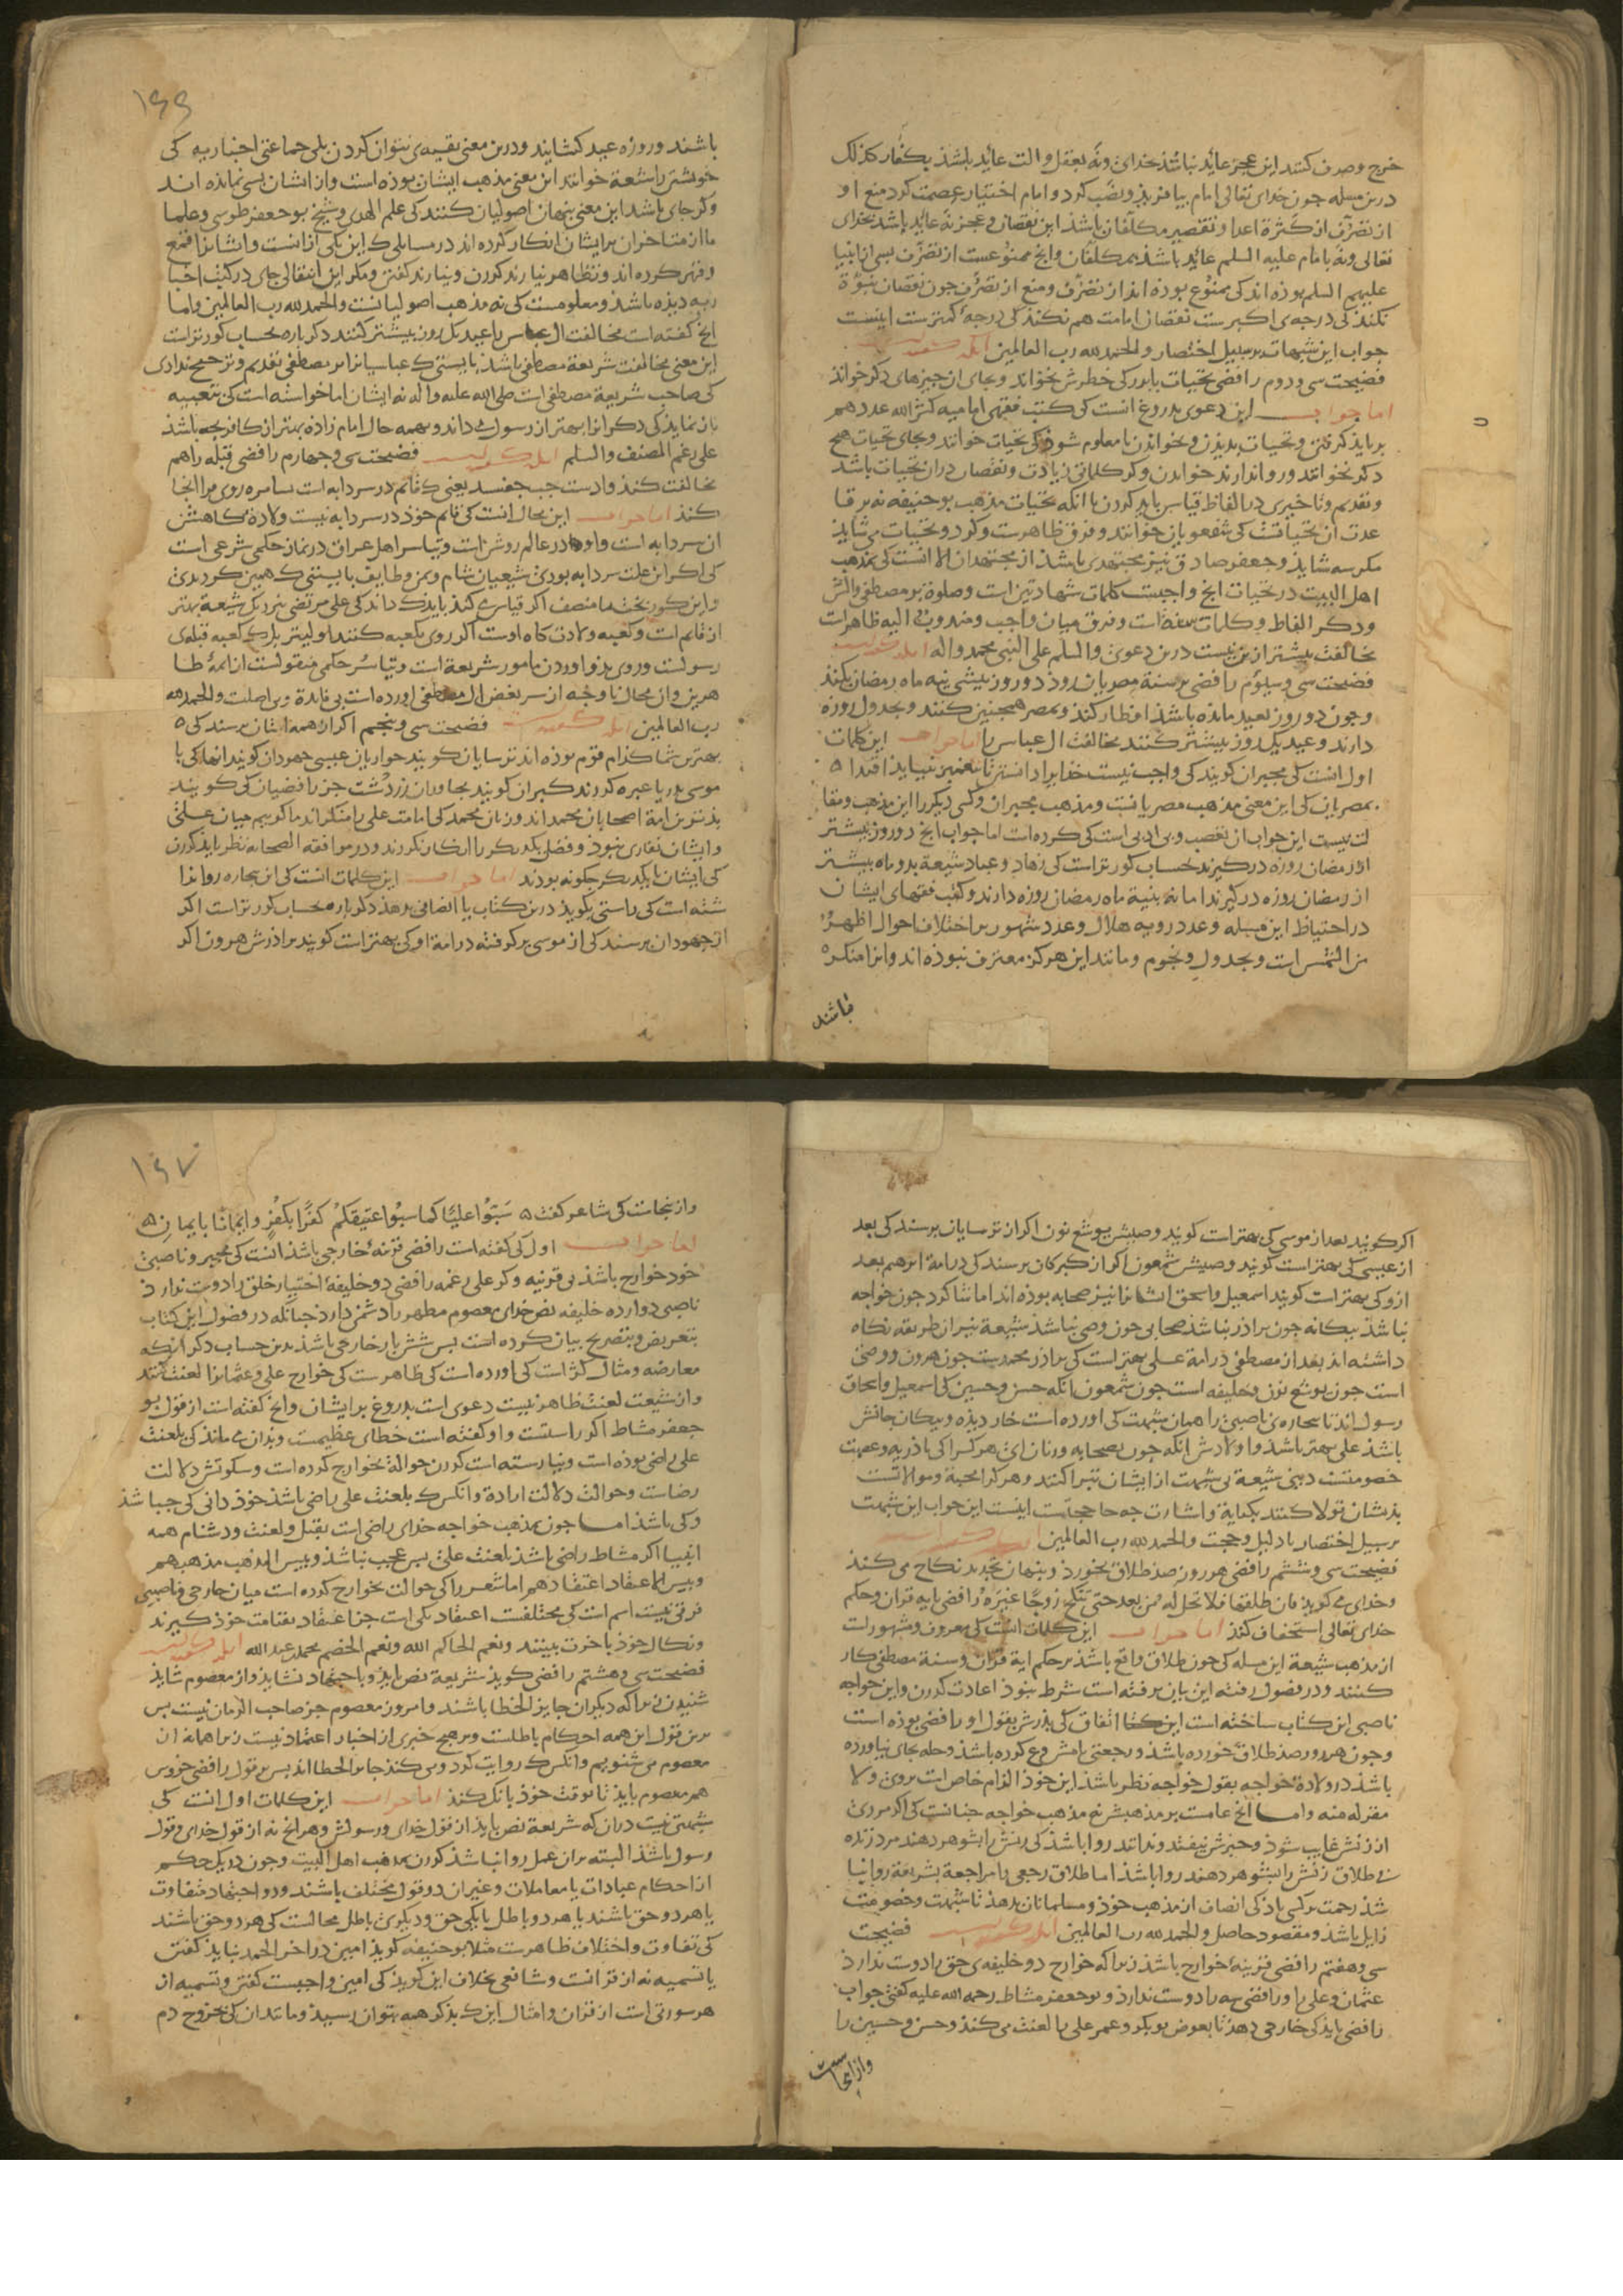 خرج وصرف کنند این عجز عائد نباشد بخدای ونه بعقل والت عائد باشد بکفار کذلک
درین مسله چون خدای تعالی امام بیافرید ونصب کرد و امام اختیار عصمت کرد منع او
از تصرف از کثرة اعدا و تقصیر مکلفان باشد این نقصان وعجز نه عائد باشد بخدای
تعالی ونه بامام علیه السلم عائد باشد بمکلفان وانچ ممنوعست از تصرف بسی از انبیا
علیهم السلم بوده اند کی ممنوع بوده اند از تصرف ومنع از تصرف چون نقصان نبوة
نکند کی درجه ی اکبرست نقصان امامت هم نکند کی درجهٔ کمترست اینست
جواب این شبهات بر سبیل اختصار والحمد لله رب العالمین انکه گفته است
فضیحت سی ودوم رافضی تحیات باور کی خطرش بخواند وبجای ان چیزهای دکر خواند
اما جواب این دعوی بدروغ انست کی کتب فقهی امامیه کثر الله عددهم
بر باید کرفتن و تحیات بدیدن وبخواندن تا معلوم شود کی تحیات خوانند وبجای تحیات هیچ
دکر نخوانند وروا ندارند خواندن وکر کلماتی زیادت ونقصان دران تحیات باشد
وتقدیم وتاخیری در الفاظ قیاس باید کردن با انکه تحیات مذهب بوحنیفه نه بر قا
عدت ان تحیاتست کی شفعویان خوانند وفرق ظاهرست وکر دو تحیات می شاید
مکر سه شاید وجعفر صادق نیز مجتهدی باشد از مجتهدان الا انست کی بمذهب
اهل البیت در تحیات انچ واجبست کلمات شهادتین است وصلوة بر مصطفی والش
ودکر الفاظ وکلمات است وفرق میان واجب ومندوب الیه ظاهرات
مخالفت بیشتر ازین نیست درین دعوی والسلم علی النبی محمد واله انکه گفته است
فضیحت سی وسیوم رافضی بر سنة مصریان رود دو روز پیش بنیه ماه رمضان بکند
وچون دو روز بعید مانده باشد افطار کند وبمصر همچنین کنند وبجدول روزه
دارند وعید یک روز بیشتر کنند مخالفت ال عباس را اما جواب این کلمات
اول انست کی مجبران کویند کی واجب نیست خدایرا دانستن تا پیغمبر نیاید اقتدا
بمصریان کی این معنی مذهب مصریانست ومذهب مجبران وکس دیکر را این مذهب ومقا
لت نیست این جواب از تعصب وبی ادبی است کی کرده است اما جواب انچ دو روز پیشتر
از رمضان روزه درکیرند بحساب کورتراست کی زهاد وعباد شیعه بدو ماه پیشتر
از رمضان روزه درکیرند اما نه بنیه ماه رمضان روزه دارند وکتب فقهای ایشان
در احتیاط این مسله وعدد رویه هلال وعدد شهور بر اختلاف احوال اظهر
من الشمس است وبجدول ونجوم ومانند این هرکز معترف نبوده اند وانرا منکر
باشند
۱۶۶
باشند وروزه عید کشایند ودرین معنی تقیه ی نتوان کردن بلی جماعتی اخباریه کی
خویشتن را شیعة خوانند این معنی مذهب ایشان بوده است واز ایشان بسی نمانده اند
وکر جای باشد این معنی پنهان اصولیان کنند کی علم الهدی وشیخ بوجعفر طوسی وعلما
ما از متاخران بر ایشان انکار کرده اند در مسایلی کی این یکی از انست وایشانرا قمع
وقهر کرده اند وتظاهر نیارند کردن ونیارند کفتن ومکر این انتقالی جای در کتب اخبا
ریه دیده باشد ومعلومست کی نه مذهب اصولیانست والحمد لله رب العالمین واما
انچ کفته است مخالفت ال عباس را عید یک روز بیشتر کنند دکر باره بحساب کورتراست
این معنی مخالفت شریعة مصطفی باشد بایستی کی عباسیانرا بر مصطفی تقدیم وترجیح ندادی
کی صاحب شریعة مصطفی است صلی الله علیه واله نه ایشان اما خواسته است کی تعبیه
بازنماید کی دکرانرا بهتر از رسول می داند وبهمه حال امام زاده بهتر از کافر بچه باشد
علی رغم المصنف والسلم انکه گفته است فضیحت سی وچهارم رافضی قبله را هم
مخالفت کند یعنی کی قائم در سردابه است بسامره روی فرا انجا
کند اما جواب این محال انست کی قائم خود در سردابه نیست ولادة کاهش
ان سردابه است واو در عالم روشن است وتیاسر اهل عراق در نماز حکمی شرعی است
کی اکر از علت سردابه بودی شیعیان شام ویمن وطایف بایستی کی همین کردندی
واین کوربخت نامنصف اکر قیاس کند باید کی داند کی علی مرتضی بنزدیک شیعة بهتر
از قائم است وکعبه ولادت کاه اوست اکر روی بکعبه کنند اولیتر بلکی کعبه قبله ی
رسولست وروی بدو اوردن مامور شریعة است وتیاسر حکمی منقولست از ائمهٔ طا
هرین وان محال ناوجه از سر بغض ال مصطفی اورده است بی فایدة وبی اصلت والحمد لله
رب العالمین انکه گفته است فضیحت سی وپنجم اکر از همه ایشان برسند کی
بهترین شما کدام قوم بوده اند ترسایان کویند حواریان عیسی جهودان کویند انها کی با
موسی بدریا عبره کردند کبران کویند مجاوران زردشت جز رافضیان کی کویند
بدترین امة اصحابان محمد اند وزنان محمد کی امامت علی را منکر اند ما کوییم میان علی
وایشان نقاری نبود وفضل یکدیکر را انکار نکردند ودر موافقه الصحابه نظر باید کردن
کی ایشان با یکدیکر چکونه بودند اما جواب این کلمات انست کی این بیچاره روا ندا
شته است کی راستی بکوید درین کتاب یا انصافی بدهد دکر باره بحساب کورتراست اکر
از جهودان برسند کی از موسی برکرفته در امة او کی بهتر است کویند برادرش هرون اکر
اکر کویند بعد از موسی کی بهتر است کویند وصیش یوشع نون اکر از ترسایان برسند کی بعد
از عیسی کی بهتر است کویند وصیش شمعون اکر از کبرکان برسند کی در امة ابرهیم بعد
ازو کی بهتر است کویند اسمعیل واسحق ایشانرا نیز صحابه بوده اند اما ثنا کرد چون خواجه
نباشد بیکانه چون برادر نباشد صحابی چون وصی نباشد شیعة نیز ان طریقه نکاه
داشته اند بعد از مصطفی در امة علی بهتر است کی برادر محمدست چون هرون ووصی
است چون یوشع نون وخلیفه است چون شمعون انکه حسن وحسین کی اسمعیل واسحاق
رسول اند تا بیچاره ی ناصبی را همان شبهت کی اورده است خار دیده وپیکان جانش
باشد علی بهتر باشد واولادش انکه چون بصحابه وزنان ای هر کسرا کی با ذریه وعصمت
خصومتست دینی شیعة بی شبهت از ایشان تبرا کنند وهر کرا محبة وموالاتست
بدیشان تولا کنند بکنایة واشارت چه حاجتست اینست این جواب این شبهت
بر سبیل اختصار با دلیل وحجت والحمد لله رب العالمین انکه گفته است
فضیحت سی وششم رافضی هر روز صد طلاق بخورد وپنهان تجدید نکاح می کند
وخدای می کوید فان طلقها فلا تحل له من بعد حتی تنکح زوجا غیره رافضی بایه قران وحکم
خدای تعالی استخفاف کند اما جواب این کلمات انست کی معروف ومشهورات
از مذهب شیعة این مسله کی چون طلاق واقع باشد بر حکم ایة قران وسنة مصطفی کار
کنند ودر فصول رفته این بیان برفته است شرط نبود اعادت کردن واین خواجه
ناصبی این کتاب ساخته است اتفاق کی پدرش بقول او رافضی بوده است
وچون هر روز صد طلاق خورده باشد ورجعتی نامشروع کرده باشد وحله بجای نیاورده
باشد در ولادة خواجه بقول خواجه نظر باشد این خود الزام خاص است بروی ولا
مفر له منه واما انچ عامست بر مذهبش نه مذهب خواجه چنانست کی اکر مردی
از زنش غایب شود وخبرش نیفتد وندانند روا باشد کی زنش را بشوهر دهند مرد زنده
بی طلاق زنش را بشوهر دهند روا باشد اما طلاق رجعی با مراجعة بشریعة روا نبا
شد رحمت بر کسی باد کی انصاف از مذهب خود ومسلمانان بدهد تا شبهت وخصومت
زایل باشد ومقصود حاصل والحمد لله رب العالمین انکه گفته است فضیحت
سی وهفتم رافضی قرینهٔ خوارج باشد زیرا که خوارج دو خلیفه ی حق را دوست ندارد
عثمان وعلی را ورافضی سه را دوست ندارد وبوجعفر مشاط رحمه الله علیه کفتی جواب
رافضی باید کی خارجی دهد تا بعوض بوبکر وعمر علی را لعنت می کند وحسن وحسین را
وازانجاست
۱۶۷
وازینجاست کی شاعر کفت سبوا علیا کما سبوا عتیقکم کفرا بکفر وایمانا بایمان
اما جواب اول کی کفته است رافضی قرینهٔ خارجی باشد انست کی مجبر وناصبی
خود خوارج باشد بی قرینه وکر علی رغمه رافضی دو خلیفهٔ اختیار خلق را دوست ندارد
ناصبی دوازده خلیفه نص خدای معصوم مطهر را دشمن دارد چنانکه در فصول این کتاب
بتعریض وبتصریح بیان کرده است بس شش بار خارجی باشد بدین حساب دکر انکه
معارضه ومثال کژ است کی اورده است کی ظاهرست کی خوارج علی وعثمانرا لعنت کنند
واز شیعت لعنت ظاهر نیست دعوی است بدروغ بر ایشان وانچ کفته است از قول بو
جعفر مشاط اکر راستست واو کفته است خطای عظیمست وبدان می ماند کی بلعنت
علی راضی بوده است ونیارسته است کردن حوالة بخوارج کرده است وسکوتش دلالت
رضاست وحوالت دلالت ارادة وانکس کی بلعنت علی راضی باشد خود دانی کی چه باشد
وکی باشد اما چون بمذهب خواجه خدای راضی است بقتل ولعنت ودشنام همه
انبیا اکر مشاط راضی باشد بلعنت علی بس عجب نباشد وبیس المذهب مذهبهم
وبیس الاعتقاد اعتقادهم اما شعر را کی حوالت بخوارج کرده است میان خارجی وناصبی
فرقی نیست اسم است کی مختلفست اعتقاد یکی است جزا عتقاد بقیامت خود کیرند
ونکال خود باخرت بینند ونعم الحاکم الله ونعم الخصم محمد عبد الله انکه گفته است
فضیحت سی وهشتم رافضی کوید شریعة نص باید وباجتهاد نشاید واز معصوم شاید
شنیدن زیرا که دیکران جایز الخطا باشند وامروز معصوم جز صاحب الزمان نیست بس
برین قول این همه احکام باطلست وبر هیچ خبری از اخبار اعتماد نیست زیرا همه نه از
معصوم می شنویم وانکس کی روایت کرد ومی کند جایز الخطا اند بس بر قول رافضی خروس
هم معصوم باید تا بوقت خود بانک کند اما جواب این کلمات اول انست کی
شبهتی نیست دران که شریعة نص باید از قول خدای ورسولش وهر انچ نه از قول خدای وقول
رسول باشد البته بران عمل روا نباشد کردن بمذهب اهل البیت وچون در یک حکم
از احکام عبادات یا معاملات وغیر ان دو قول مختلف باشند ودو اجتهاد متفاوت
یا هر دو حق باشند یا هر دو باطل یا یکی حق ودیکری باطل محالست کی هر دو حق باشند
کی تفاوت واختلاف ظاهرست مثلا بوحنیفه کوید امین در اخر الحمد نباید کفتن
یا تسمیه نه از قرانست وشافعی بخلاف این کوید کی امین واجبست کفتن وتسمیه از
هر سورتی است از قران وامثال این کی بذکر همه نتوان رسید ومانند ان کی بخروج دم